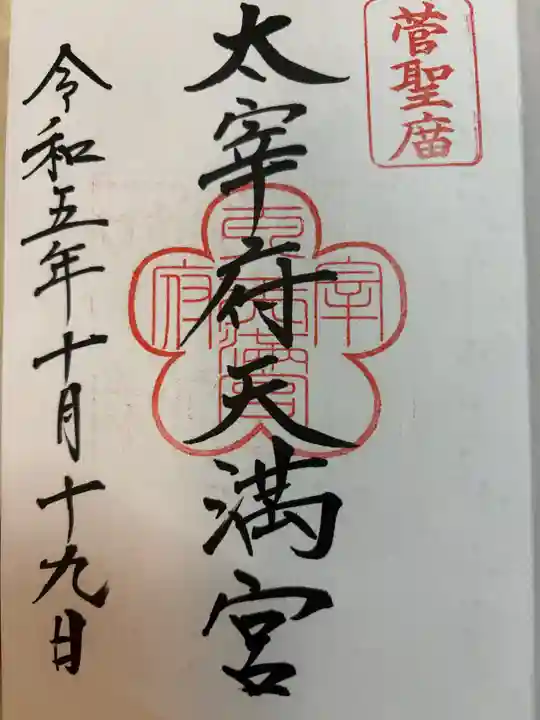 菅聖庿
太宰府天満宮
令和五年十月十九日